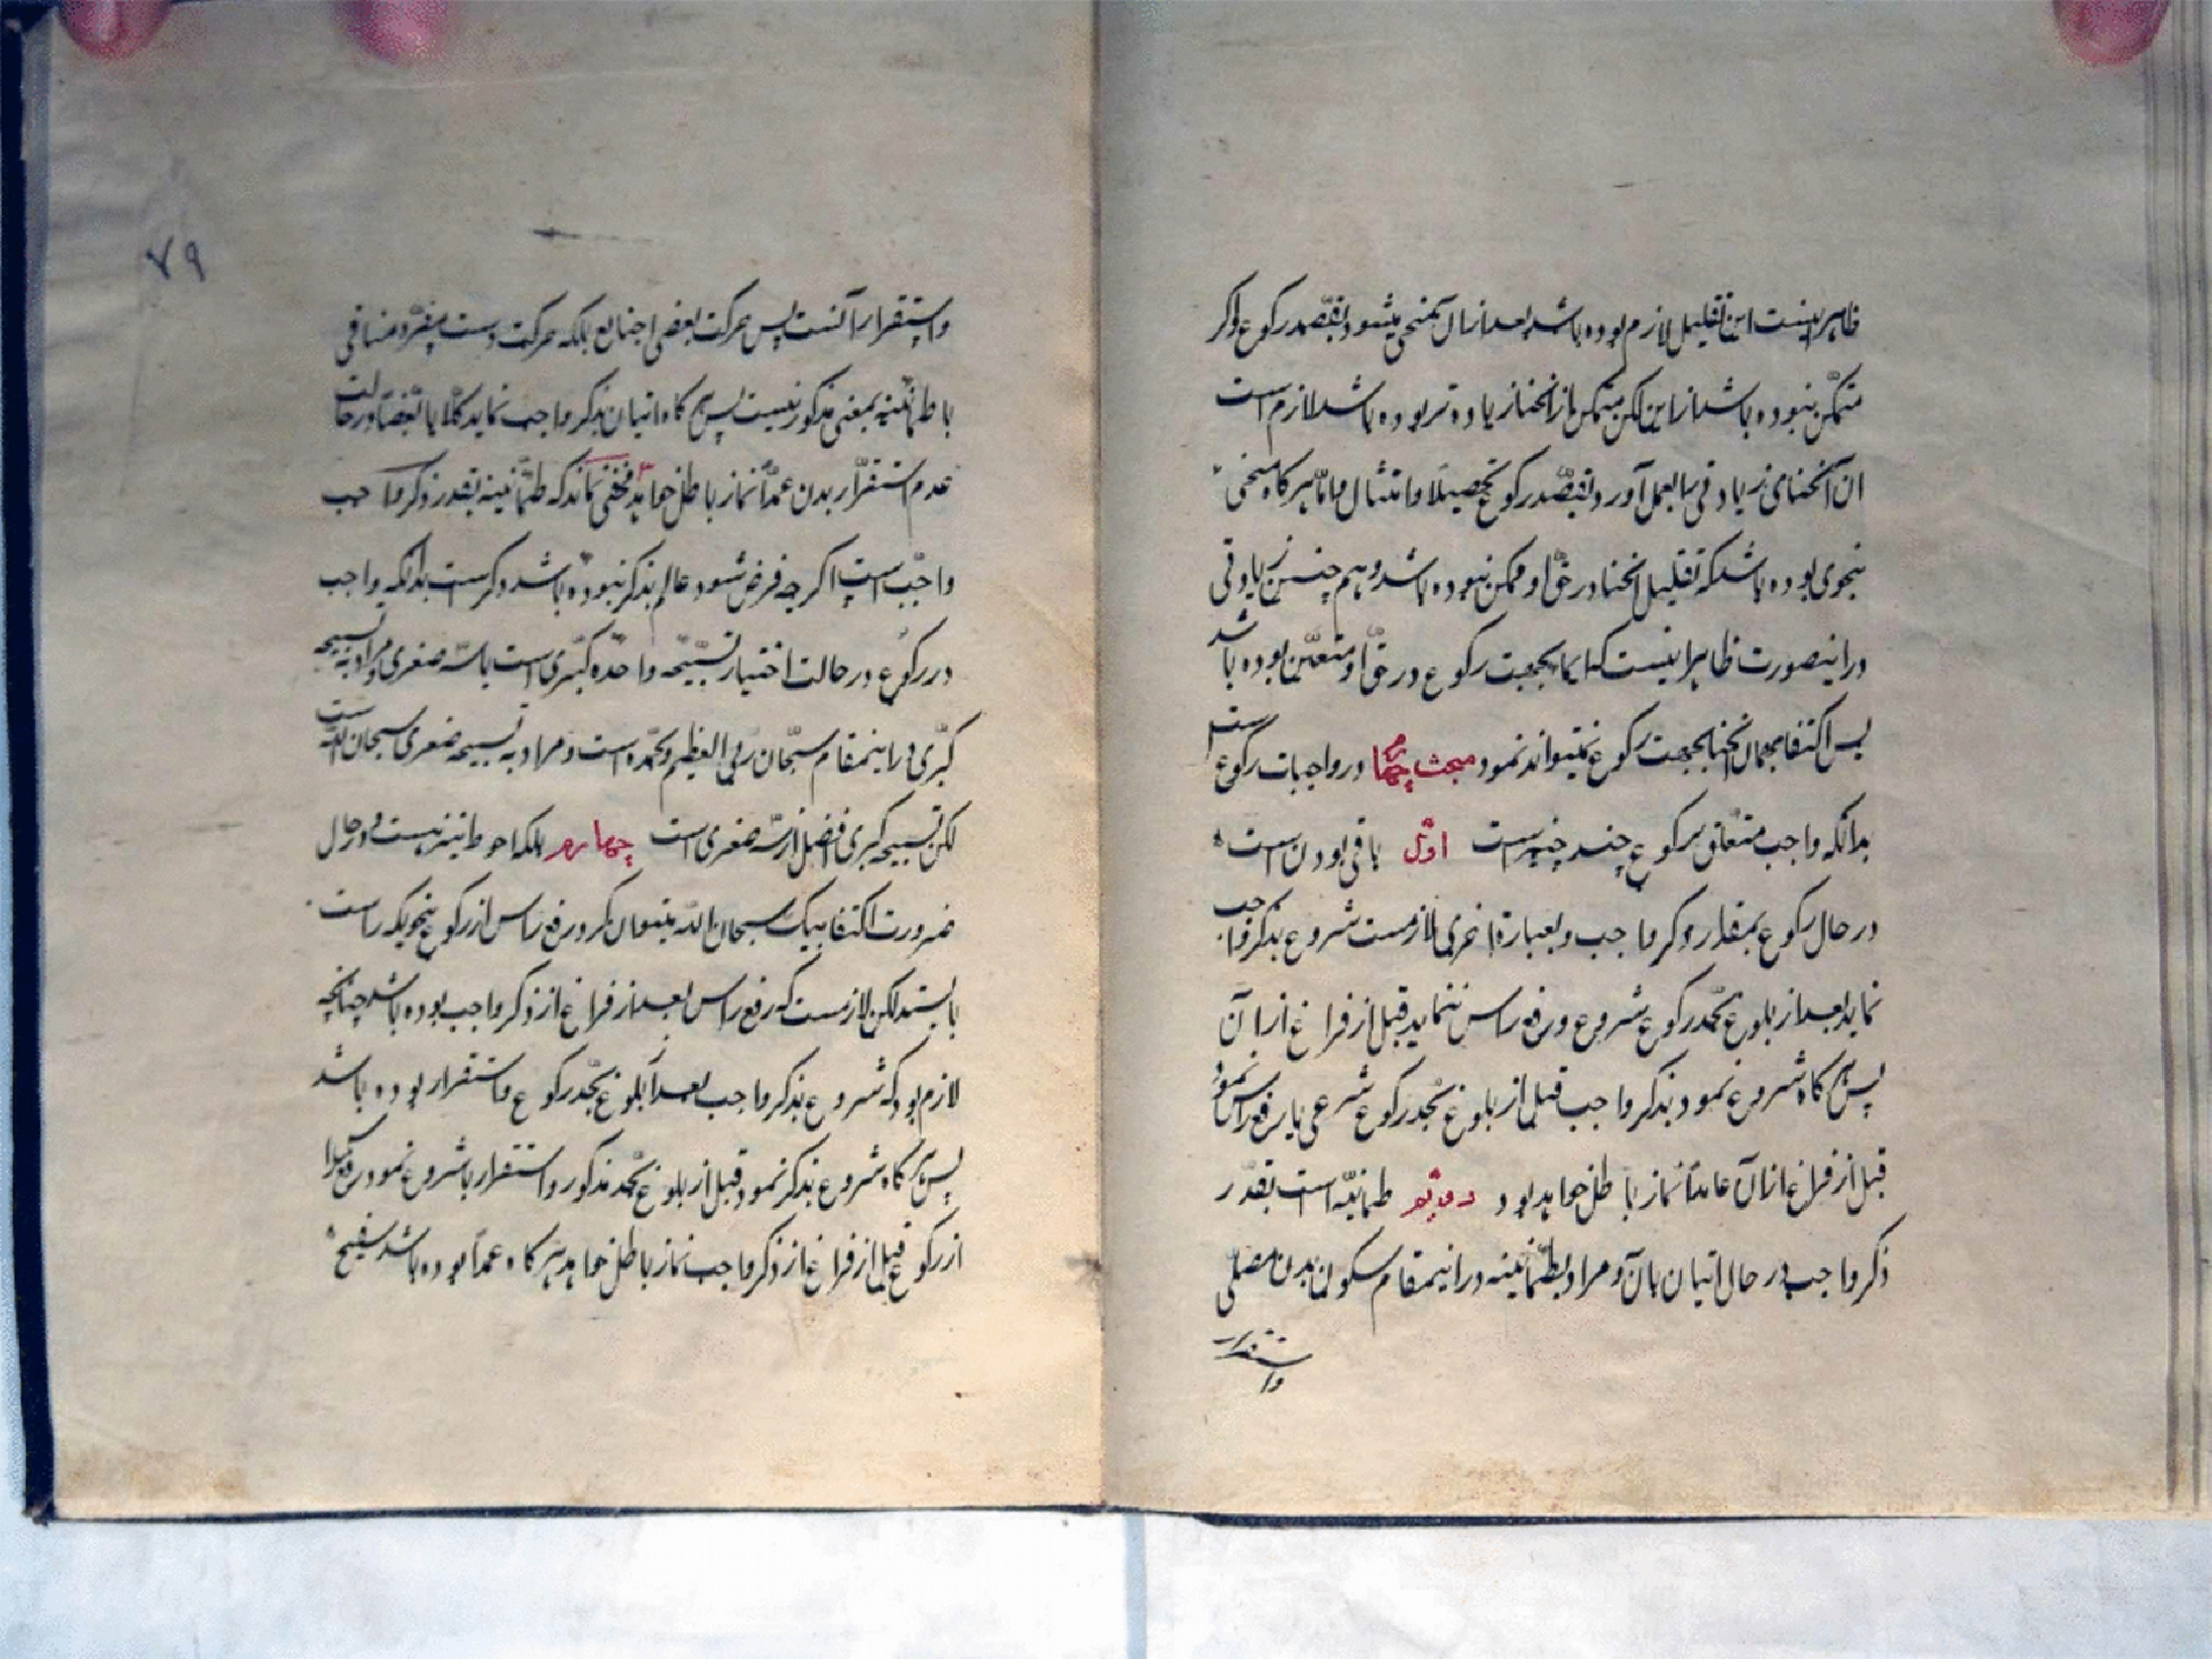 ظاهر اینست این تقلیل لازم بوده باشد بعد از ان منحنی میشود بقصد رکوع و اکر
متمکن نبوده باشد از این لکن متمکن از انحنا زیاده تر بوده باشد لازم است
ان انحنای زیادتی را بعمل آورد بقصد رکوع تحصیلا و امتثال و اما هر کاه منحنی
بنحوی بوده باشد که تقلیل انحنا در حق او ممکن نبوده باشد و هم چنین زیادتی
در اینصورت ظاهر اینست که ایما بجهت رکوع در حق او متعین بوده باشد
پس اکتفا بهمان انحنا بجهت رکوع نمیتواند نمود مبحث چهارم در واجبات رکوع است
بدانکه واجب متعلق برکوع چند چیز است اول باقی بودن است
در حال رکوع بمقدار ذکر واجب و بعبارة اخری لازمست شروع بذکر واجب
نماید بعد از بلوغ بحد رکوع شروع و رفع راس ننماید قبل از فراغ از ان
پس هر کاه شروع نمود بذکر واجب قبل از بلوغ بحد رکوع شرعی یا رفع راس نمود
قبل از فراغ از ان عامدًا نماز باطل خواهد بود دویّم طمانینه است بقدر
ذکر واجب در حال اتیان بان و مراد بطمانینه در اینمقام سکون بدن مصلی
واستقرار
۷۹
واستقرار آنست پس حرکت بعضی اصابع بلکه حرکت دست منافی
با طمانینه بمعنی مذکور نیست پس هر کاه اتیان بذکر واجب نماید کلًا یا بعضًا در حالت
عدم استقرار بدن عمدًا نماز باطل خواهد مخفی نماند که طمانینه بقدر ذکر واجب
واجب است اکر چه فرض شود عالم بذکر نبوده باشد ذکر است بدانکه واجب
در رکوع در حالت اختیار تسبیحه واحده کبری است یا سه صغری و مراد به تسبیحه
کبری در اینمقام سبحان ربی العظیم وبحمده است و مراد به تسبیحه صغری سبحان الله است
لکن تسبیحه کبری افضل از سه صغری است چهارم بلکه احوط نیز هست و در حال
ضرورت اکتفا بیک سبحان الله میتوان کرد و رفع راس از رکوع بنحویکه راست
بایستد لکن لازمست که رفع راس بعد از فراغ از ذکر واجب بوده باشد چنانچه
لازم بود که شروع بذکر واجب بعد از بلوغ بحد رکوع و استقرار بوده باشد
پس هر کاه شروع بذکر نمود قبل از بلوغ بحد مذکور و استقرار یا شروع نمود
از رکوع قبل از فراغ از ذکر واجب نماز باطل خواهد هر کاه عمدًا بوده باشد